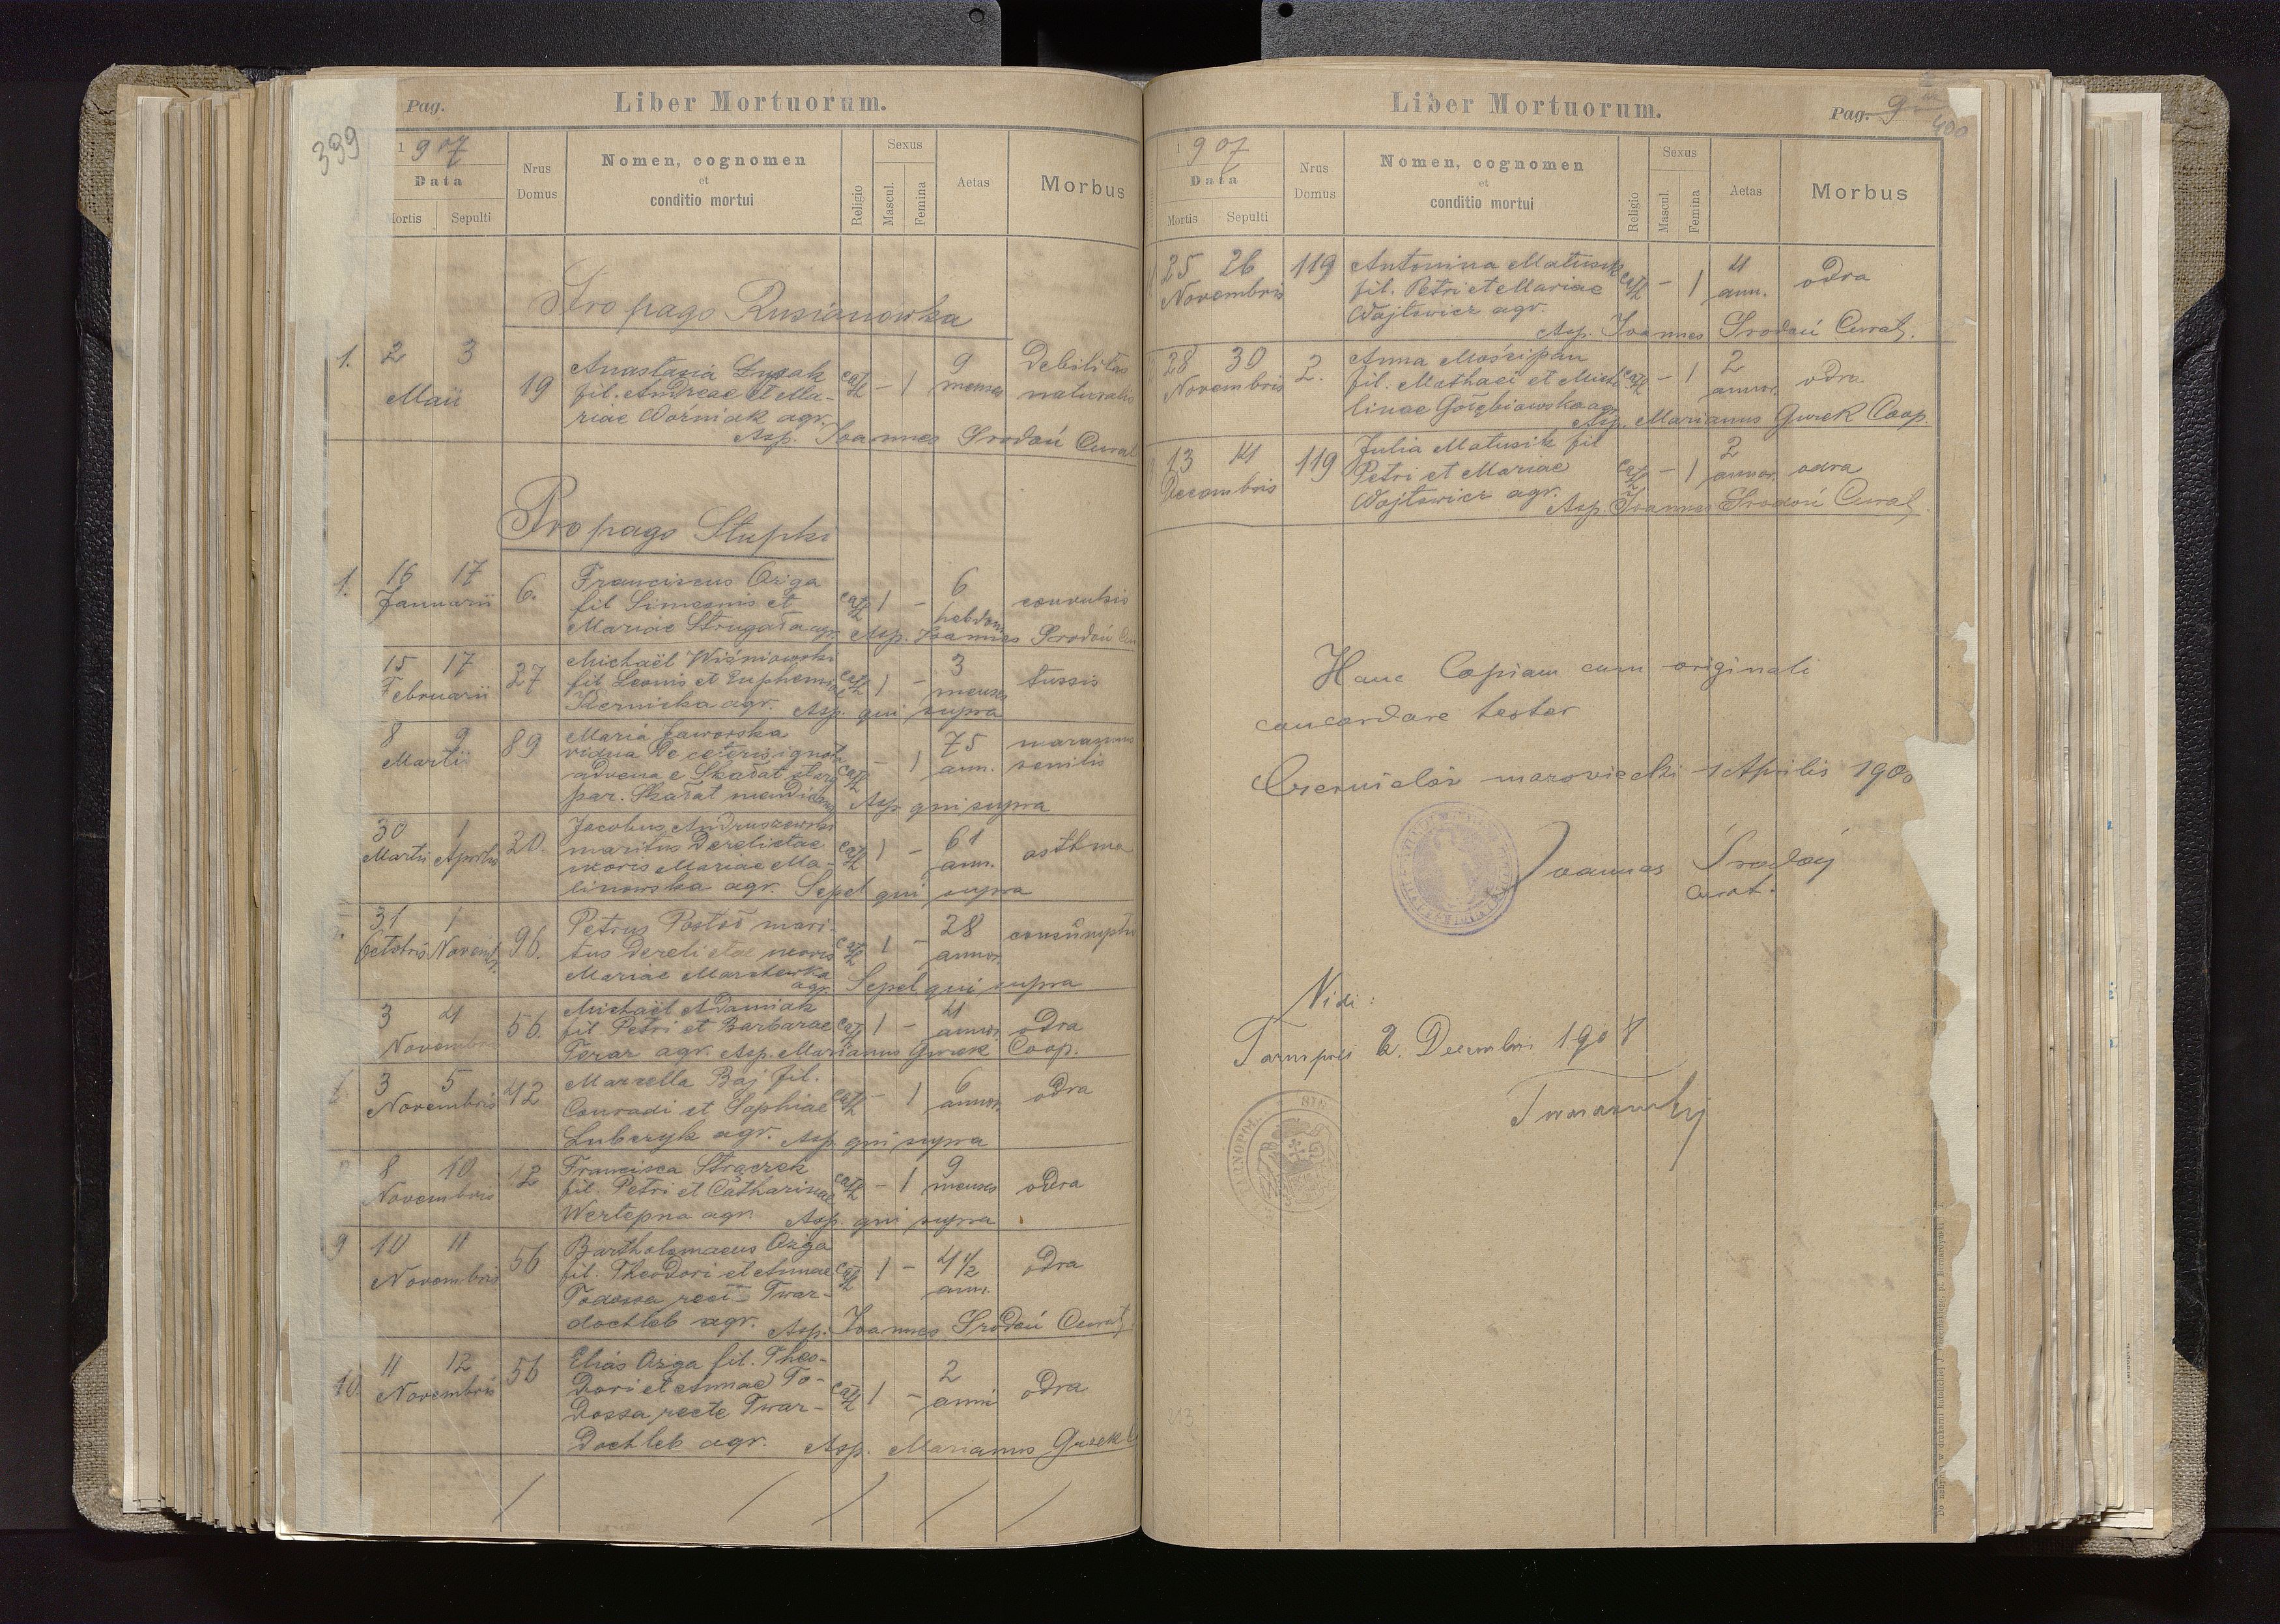 399
Pag.
Liber Mortuorum.
1907
Data
Mortis
Sepulti
Nrus
Domus
Nomen, cognomen
et
conditio mortui
Religio
Sexus
Mascul.
Femina
Aetas
Morbus
Pro pago Rusianowka
1. 2 3 Maii 19 Anastasia Łysak cath - 1 9 menses Debilitas naturalis
fil. Andreae et Ma-
riae Woźniak agr.
Asp. Joannes Srodoń Curat
Pro pago Stupki
1. 16 17 Januarii 6. Franciscus Oziga cath 1 - 6 hebdom convulsio
fil Simeonis et
Mariae Strugała agr. Asp. Joannes Srodoń Cur
15 17 Februarii 27 Michaël Wiśniowski cath 1 - 3 menses tussis
fil Leonis et Euphemiae
Kiernicka agr. Asp. qui supra
8 9 Martii 89 Maria Jaworska cath - 1 75 ann. marazmus senilis
vidua de ceteris ignota
advena e Skałat
par. Skałat mendicans Asp qui supra
30 Martii 1 Aprilis 20. Jacobus Andruszewski cath 1 - 61 ann. asthma
maritus derelictae
uxoris Mariae Ma-
linowska agr. Sepel qui supra
31 Octobris 1 Novemb. 96. Petrus Postół mari- cath 1 - 28 annor. consumptio
tus derelictae uxoris
Mariae Marchewka
agr. Sepel. qui supra
3 4 Novembris 56. Michaël Adamiak cath 1 - 4 annor. odra
fil Petri et Barbarae
Terar agr. Asp. Marianus Gurek Coop.
3 5 Novembris 42 Marcella Baj fil. cath - 1 6 annor. odra
Conradi et Sophiae
Luberyk agr. Asp qui supra
8 10 Novembris 12 Francisca Strączek cath - 1 9 menses odra
fil. Petri et Catharinae
Wertepna agr. Asp. qui supra
9 10 11 Novembris 56 Bartholomaeus Oziga cath 1 - 4½ ann. odra
fil. Theodori et Annae
Todossa recte Twar-
dochleb agr. Asp. Joannes Srodoń Curat.
10 11 12 Novembris 56 Elias Oziga fil. Theo- cath 1 - 2 anni odra
dori et Annae To-
dossa recte Twar-
dochleb agr. Asp. Marianus Gurek
Liber Mortuorum.
Pag. 9
400
1907
Data
Mortis
Sepulti
Nrus
Domus
Nomen, cognomen
et
conditio mortui
Religio
Sexus
Mascul.
Femina
Aetas
Morbus
25 26 Novembris 119 Antonina Matusik cath - 1 4 ann. odra
fil. Petri et Mariae
Wojtowicz agr.
Asp. Joannes Srodoń Curat.
28 30 Novembris 2. Anna Mościpan cath - 1 2 annor. odra
fil. Mathaei et Micha
linae Gołębiowska agr
Asp. Marianus Gurek Coop
13 14 Decembris 119 Julia Matusik fil cath - 1 2 annor. odra
Petri et Mariae
Wojtowicz agr.
Asp. Joannes Srodoń Curat.
Hanc Copiam cum originali
concordare testor
Czernielów mazowiecki 1 Aprilis 190
Joannes Środoń
curat.
Vidi:
Tarnopoli 2. Decembris 1908
TARNOPOL
213